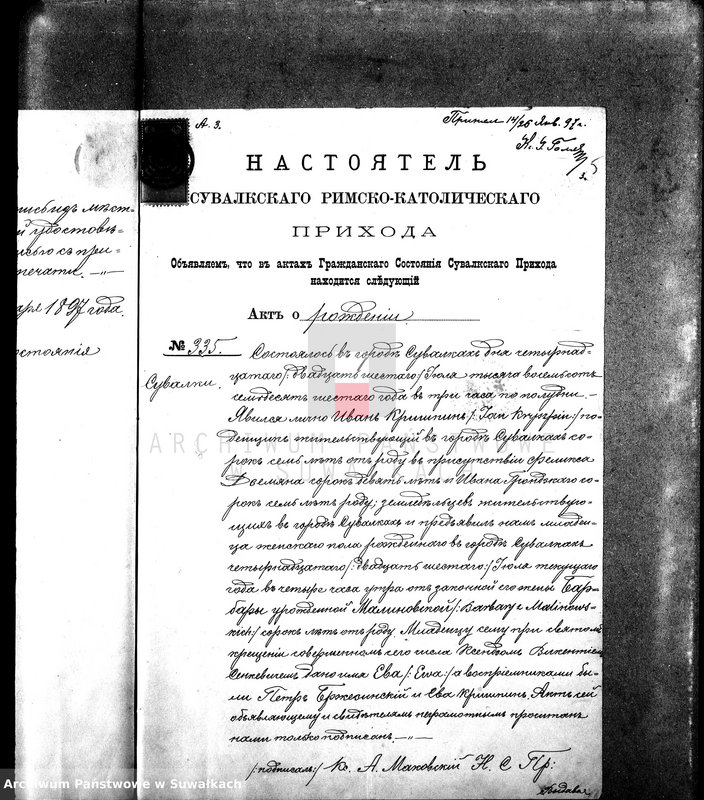 А. 3.
14/26 Янв. 97 г.
НАСТОЯТЕЛЬ
СУВАЛКСКАГО РИМСКО-КАТОЛИЧЕСКАГО
ПРИХОДА
Объявляемъ, что въ актахъ Гражданскаго Состоянія Сувалкскаго Прихода
находится слѣдующій
Актъ о рожденіи
№ 335.
Сувалки.
Состоялось въ городѣ Сувалкахъ дня четырнад-
цатаго /: двадцать шестаго :/ Іюля тысяча восемьсотъ
семьдесятъ шестаго года въ три часа по полудни. –
Явился лично Иванъ Кришпинъ /: Jan Kryszpin :/ по-
денщикъ жительствующій въ городѣ Сувалкахъ со-
рокъ семь лѣтъ отъ роду въ присутствіи Феликса
сорокъ девять лѣтъ и Ивана со-
рокъ семь лѣтъ роду; земледѣльцевъ жительствую-
щихъ въ городѣ Сувалкахъ и предъявилъ намъ младен-
ца женскаго пола рожденнаго въ городѣ Сувалкахъ
четырнадцатаго /: двадцать шестаго :/ Іюля текущаго
года въ четыре часа утра отъ законной его жены Бар-
бары урожденной Малиновской /: Barbary z Malinows-
kich :/ сорокъ лѣтъ отъ роду. Младенцу сему при святомъ
крещеніи совершенномъ сего числа Ксендзомъ Викентіемъ
Сенкевичемъ дано имя Ева /: Ewa :/ а воспріемниками бы-
ли Петръ Бржозинскій и Ева Кришпинъ. Актъ сей
объявляющему и свидѣтелямъ неграмотнымъ прочитанъ
нами только подписанъ. –"–
/: подписалъ :/ Кс. А. Маковскій Н. С. Пр:
мѣст-
-ій удостовѣ-
-исью съ при-
печати. –"–
-аря 1897 года.
-остоянія
ARCHIWUM PAŃSTWOWE
W SUWAŁKACH
Archiwum Państwowe w Suwałkach